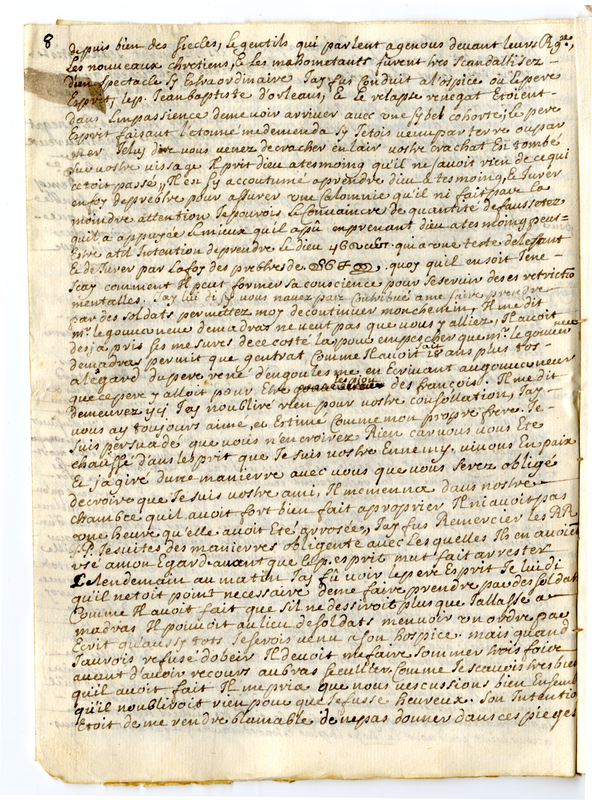 8
depuis bien des siecles, les gentils qui parlent a genous devant leurs Rgx,
les nouveaux chrétiens, & les mahometants furent tres scandallisez
d'un spectacle sy extraordinaire J'ay fus conduit a l'ospice ou le pere
Esprit, le p. Jean baptiste d'orleans, & le relapse renegat Etoient
dans l'impassience de me voir arriver avec une sy bel cohorte, le pere
Esprit faisant l'etonné me demenda sy J'etois venu par terre ou par
mer Je luy dire vous venez de cracher en lair vostre crachat en tombé
sur vostre vissage Il prit dieu a tesmoing qu'il ne savoit rien de ce qui
c'etoit passé, Il est sy accoutumé a prendre dieu a tesmoing, & Jurer
en foy de prebstre pour assurer une calomnie qu'il ni fait pas la
moindre attention Je pourois le convaincre de quantité de faussetez
qu'il a appuyée le mieux qu'il a pû en prenant dieu a tesmoing peut=
Estre atil Intention de prendre le dieu qui a une teste delefant
& de Jurer par la foy des prebstres de quoy quil en soit Je ne
scay comment Il peut former sa conscience pour se servir de ses retrictio
mentalles. J'ay lui dit sy vous navez pas contribué a me faire prendre
par des soldats permettez moy de continuer mon chemin, Il me dit
mr. le gouverneur de madras ne veut pas que vous y alliez, Il avoit
desja pris ses mesures de ce costé la pour empescher que mr. le gouverneur
de madras permit que j'entrat comme Il avoit fait 18 ans plus tos-
a legard du pere rené d'engoulesme, en Ecrivant au gouverneur
que ce pere y alloit pour Etre lespion des françois. Il me dit
demeurez ycy J'ay noublire rien pour vostre consollation, J'ay
vous ay toujours aimé, et Estimé comme mon propre frere. Je
suis persuadé que vous n'en croirez Rien car vous vous Ete
chauffé dans lesprit que Je suis vostre Ennemy, vivons En paix
Et j'agiré d'une manierre avec vous que vous serez obligé
de croire que Je suis vostre ami, Il me menna dans nostre
chambre quil avoit fort bien fait aproprier Il ni avoit pas
une heure qu'elle avoit Eté arrosée, J'ay fus Remercier les RR
pp. Jesuites des manierres obligente avec lesquelles Ils en avoient
usé a mon Egard avant que le p. esprit mut fait arrester
Le lendemain au matin J'ay fû voir le pere Esprit Je lui di
qu'il netoit point necessaire de me faire prendre par des soldats
comme Il avoit fait que s'il ne dessiroit plus que J'allasse a
madras Il pouvoit au lieu de soldats m'envoier un ordre par
Ecrit qu'aussy tots Je serois venu a son hospice. mais quand
J'aurois refusé dobeir Il devoit me faire sommer trois foire
avent d'avoir recours au bras seculier. Comme Je scavois tres bien
quil avoit fait Il me pria que nous vescussions bien Ensembl
qu'il noubliroit rien pour que Je fusse heureux. Son Intentio
Etoit de me rendre blamable de ne pas donner dans ces pieges